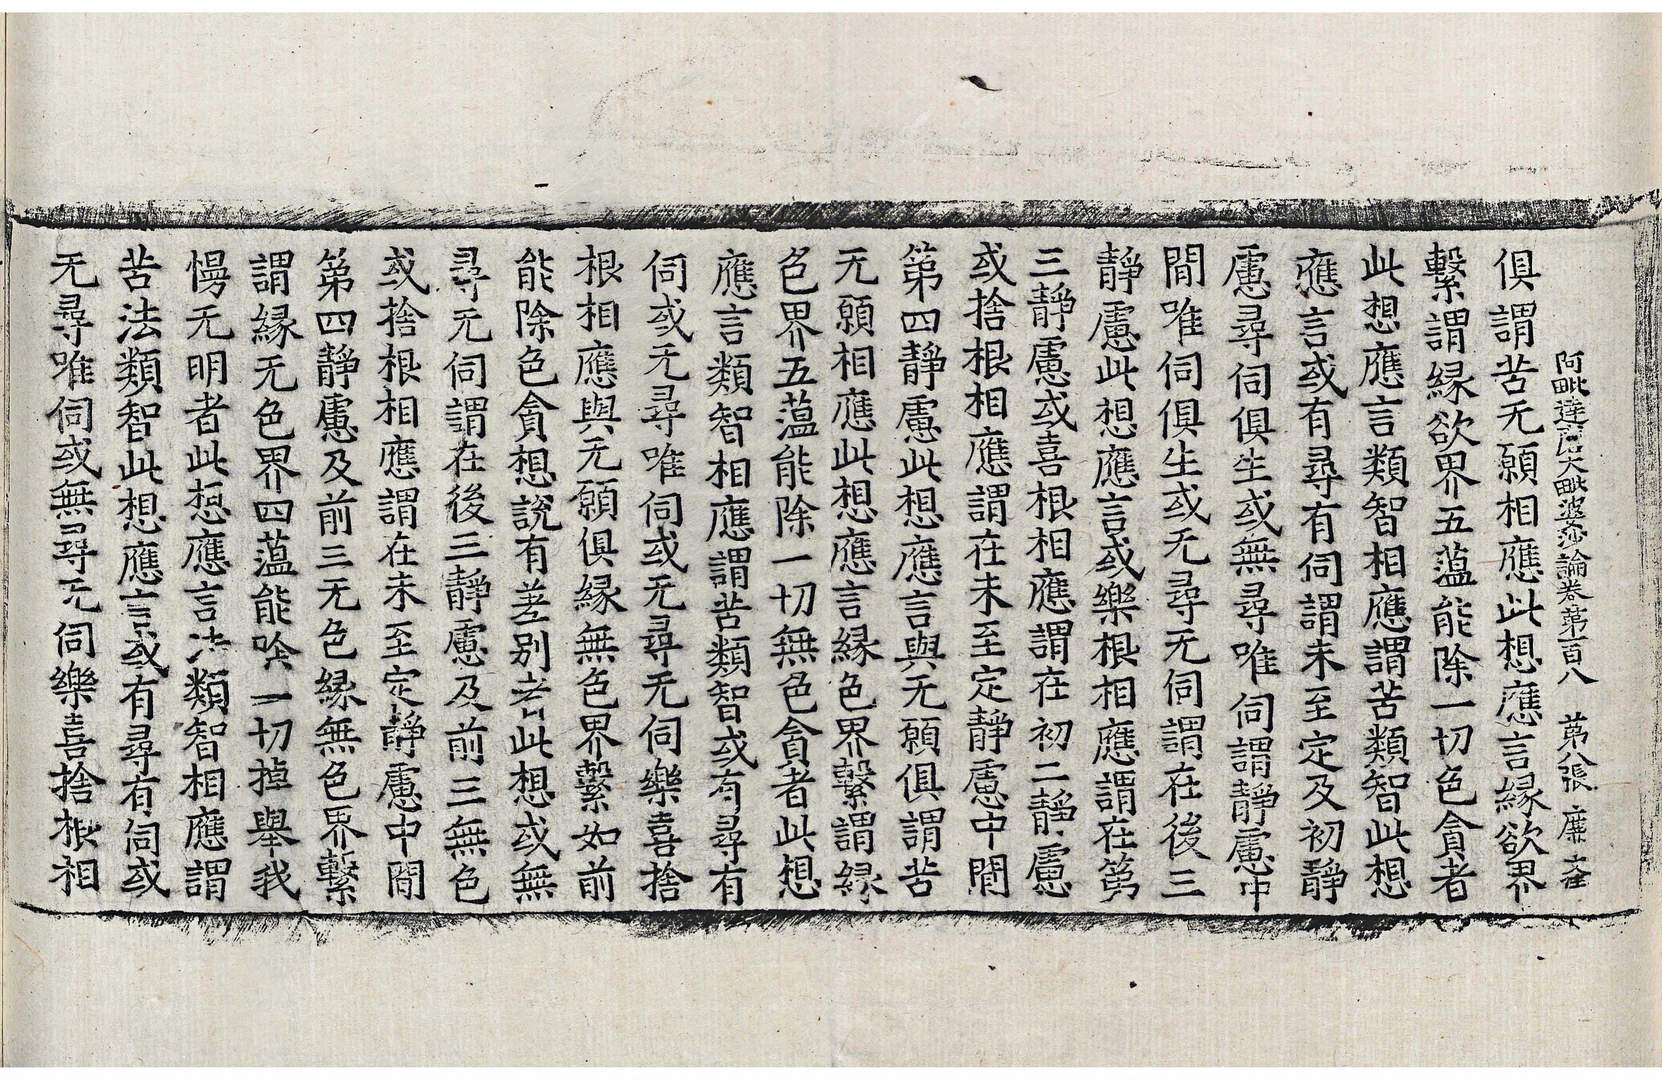 阿毗達磨大毗婆沙論卷第百八 第八張 廉
俱謂苦无願相應此想應言緣欲界
繫謂緣欲界五蕰能除一切色貪者
此想應言類智相應謂苦類智此想
應言或有尋有伺謂未至定及初静
慮尋伺俱生或無尋唯伺謂静慮中
間唯伺俱生或无尋无伺謂在後三
静慮此想應言或樂根相應謂在第
三静慮或喜根相應謂在初二静慮
或捨根相應謂在未至定静慮中間
第四静慮此想應言與无願俱謂苦
无願相應此想應言緣色界繫謂緣
色界五蕰能除一切無色貪者此想
應言類智相應謂苦類智或有尋有
伺或无尋唯伺或无尋无伺樂喜捨
根相應與无願俱緣無色界繫如前
能除色貪想說有差別者此想或無
尋无伺謂在後三静慮及前三無色
或捨根相應謂在未至定静慮中間
第四静慮及前三无色緣無色界繫
謂緣无色界四蕰能除一切掉舉我
慢无明者此想應言法類智相應謂
苦法類智此想應言或有尋有伺或
无尋唯伺或無尋无伺樂喜捨根相